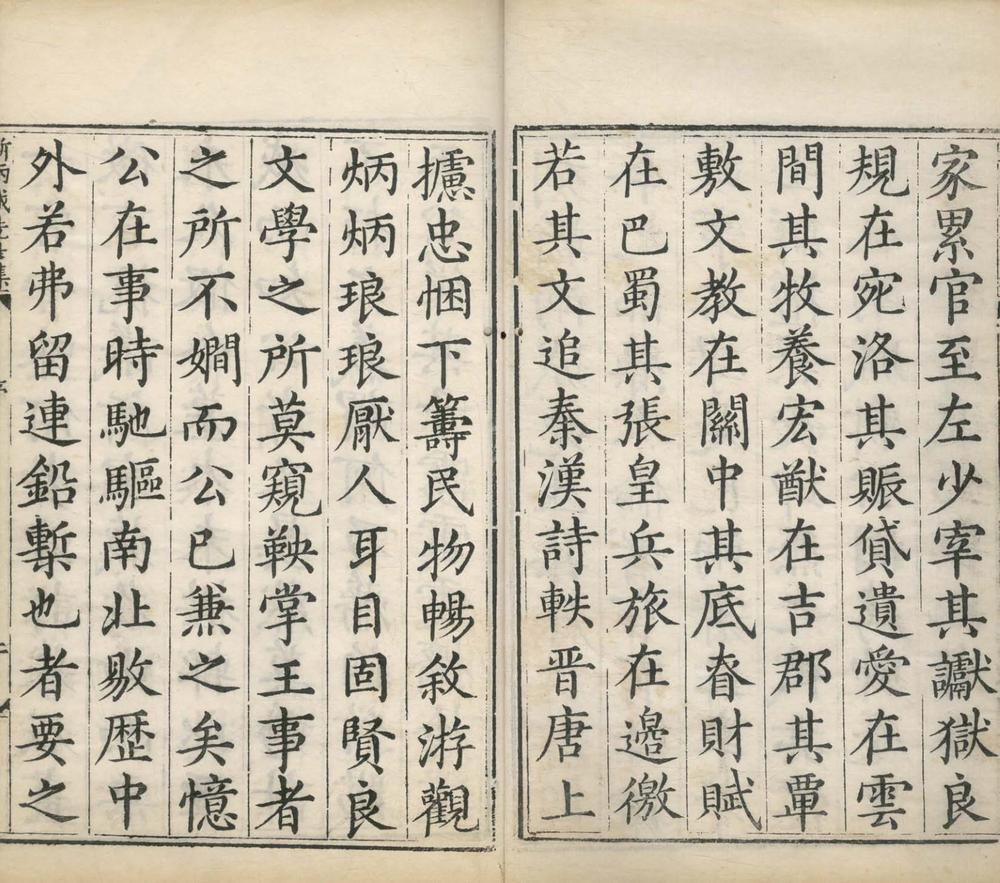 家累官至左少宰其讞獄良
規在宛洛其賑貸遺愛在雲
間其牧養宏猷在吉郡其覃
敷文教在關中其底眘財賦
在巴蜀其張皇兵旅在邊徼
若其文追秦漢詩軼晋唐上
攄忠悃下籌民物暢敘游觀
炳炳琅琅厭人耳目固賢良
文學之所莫窺鞅掌王事者
之所不嫺而公已兼之矣憶
公在事時馳驅南北敭歷中
外若弗留連鉛槧也者要之